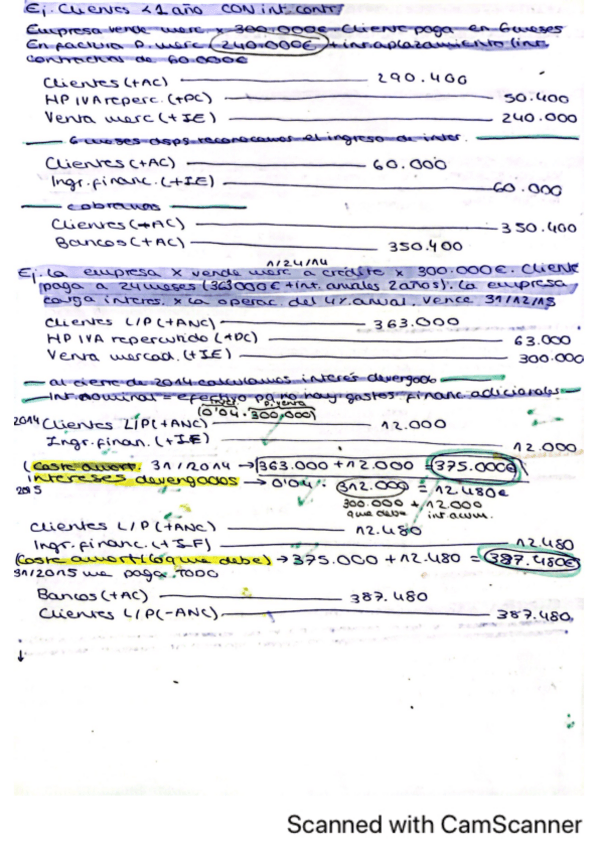 Ej. Clientes < 1 año CON int. contr/
Empresa vende merc x 300.000€. Cliente paga en 6 meses
En factura P. merc 240.000€ + int aplazamiento (int
contractual de 60.000€
Clientes (+AC) 290.400
HP IVA reperc. (+PC) 50.400
Venta merc (+IE) 240.000
6 meses dsps reconocemos el ingreso de inter.
Clientes (+AC) 60.000
Ingr. financ. (+IE) 60.000
cobramos
Clientes (-AC) 350.400
Bancos (+AC) 350.400
1/1/14
Ej. La empresa X vende merc a crédito x 300.000€. Cliente
paga a 24 meses (363000€ + int. anuales 2 años). La empresa
carga interes. x la operac. del 4% anual. Vence 31/12/15
Clientes L/P (+ANC) 363.000
HP IVA repercutido (+PC) 63.000
Venta mercad. (+IE) 300.000
al cierre de 2014 calculamos interés devengado
Int nominal = efectivo pq no hay gastos financ adicionales
0'04 · 300.000
2014 Clientes L/P (+ANC) 12.000
Ingr. finan. (+IE) 12.000
(Coste amort. 31/2014 → 363.000 + 12.000 = 375.000€
intereses devengados → 0'04 · 312.000 = 12.480€
2015
300.000 + 12.000
que debe int. acum.
Clientes L/P (+ANC) 12.480
Ingr. financ. 12.480
(Coste amort (lo que debe) → 375.000 + 12.480 = 387.480€
31/2015 me paga TODO
Bancos (+AC) 387.480
Clientes L/P (-ANC) 387.480
↓
Scanned with CamScanner